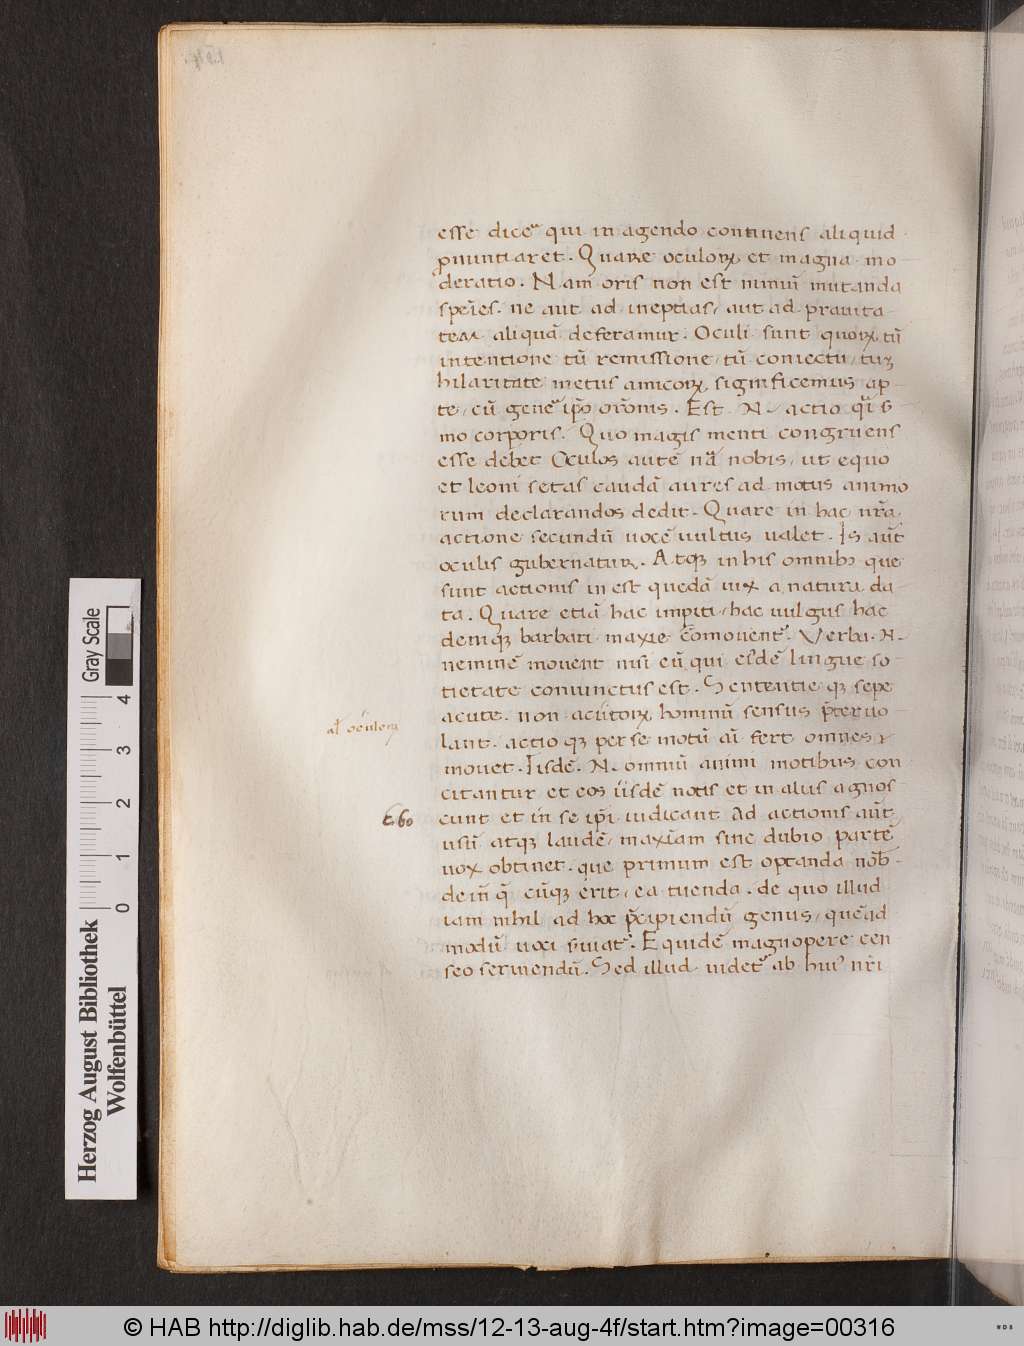 esse dicer̃ qui in agendo continens aliquid
ꝓnuntiaret. Quare oculoꝝ et magna mo
deratio. Nam oris non est nimiũ mutanda
spēies. ne aut ad ineptias, aut ad prauita
tem aliquã deferamur. Oculi sunt quoꝝ tũ
intentione tũ remissione, tũ coniectu, tuꝫ
hilaritate metus amicoꝝ significemus ap
te, cũ genẽ ip̃o or̃onis. Est .N. actio q̃i s̃
mo corporis. Quo magis menti congruens
esse debet Oculos autẽ nã nobis, ut equo
et leoni setas caudã aures ad motus animo
rum declarandos dedit. Quare in hac nr̃a
actione secundũ uocẽ uultus ualet. Is aũt
oculis gubernatur. Atqꝫ in his omnibꝫ que
sunt actionis inest quedã uix a natura da
ta. Quare etiã hac impiti, hac uulgus hac
deniqꝫ barbari maxie cõmouentᷣ. Verba .N.
neminẽ mouent nisi eũ qui eisdẽ lingue so
cietate coniunctus est. Sententie qꝫ sepe
acute. non acutoꝝ hominũ sensus p̃teruo
lant. actio qꝫ per se motũ aĩ fert omnes
mouet. Iisdẽ .N. omniũ animi motibus con
citantur et eos iisdẽ notis et in aliis agnos
cunt et in se ip̃i iudicant Ad actionis aũt
usũ atqꝫ laudẽ, maxĩam sine dubio partẽ
uox obtinet. que primum est optanda nob̃
dein̄ q̃ cũqꝫ erit, ea tuenda. de quo illud
iam nihil ad hoc p̃cipiendũ genus, quẽad
modũ uoci s̃uiatᷣ. Equidẽ magnopere cen
seo seruiendũ. Sed illud uidetᷣ ab huiᷤ nr̃i
al̃ oculorꝝ
Herzog August Bibliothek
Wolfenbüttel
Gray Scale
0 1 2 3 4
© HAB http://diglib.hab.de/mss/12-13-aug-4f/start.htm?image=00316